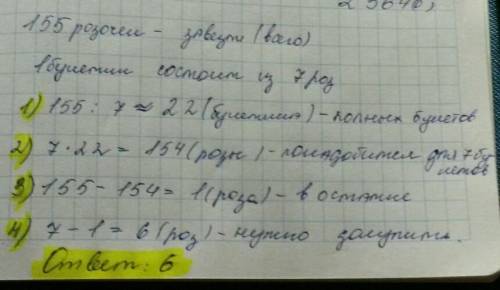 155 розочек - завезли (всего)
1 букетик состоит из 7 роз
1) 155 : 7 ≈ 22 (букетика) - полных букетов
2) 7 · 22 = 154 (розы) - понадобится для 7 бу
кетов
3) 155 - 154 = 1 (роза) - в остатке
4) 7 - 1 = 6 (роз) - нужно закупить.
Ответ: 6